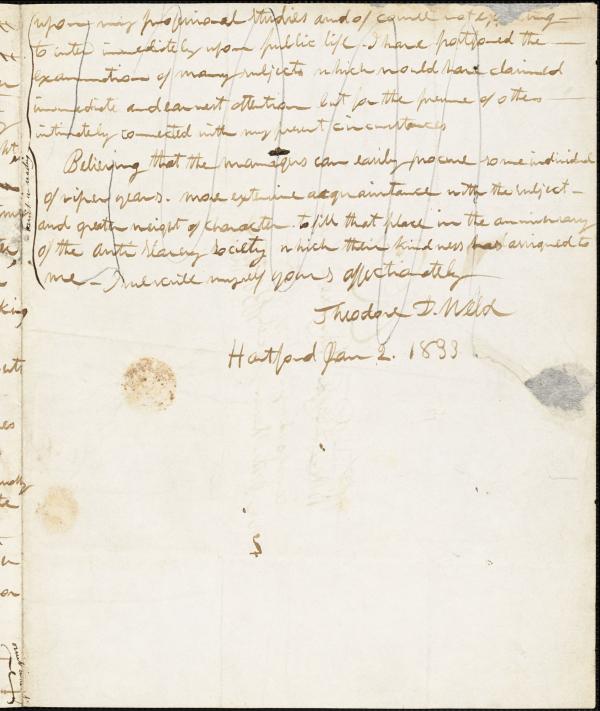 upon my professional studies and of course not expecting
to enter immediately upon public life. I have postponed the
examination of many subjects which would have claimed
immediate and earnest attention but for the pressure of others
intimately connected with my present circumstances
Believing that the managers can easily procure some individual
of riper years. more extensive acquaintance with the subject -
and greater weight of character to fill that place in the anniversary
of the Anti Slavery Society which their kindness has assigned to
me - I subscribe myself yours affectionately
Theodore D. Weld
Hartford Jan 2. 1833